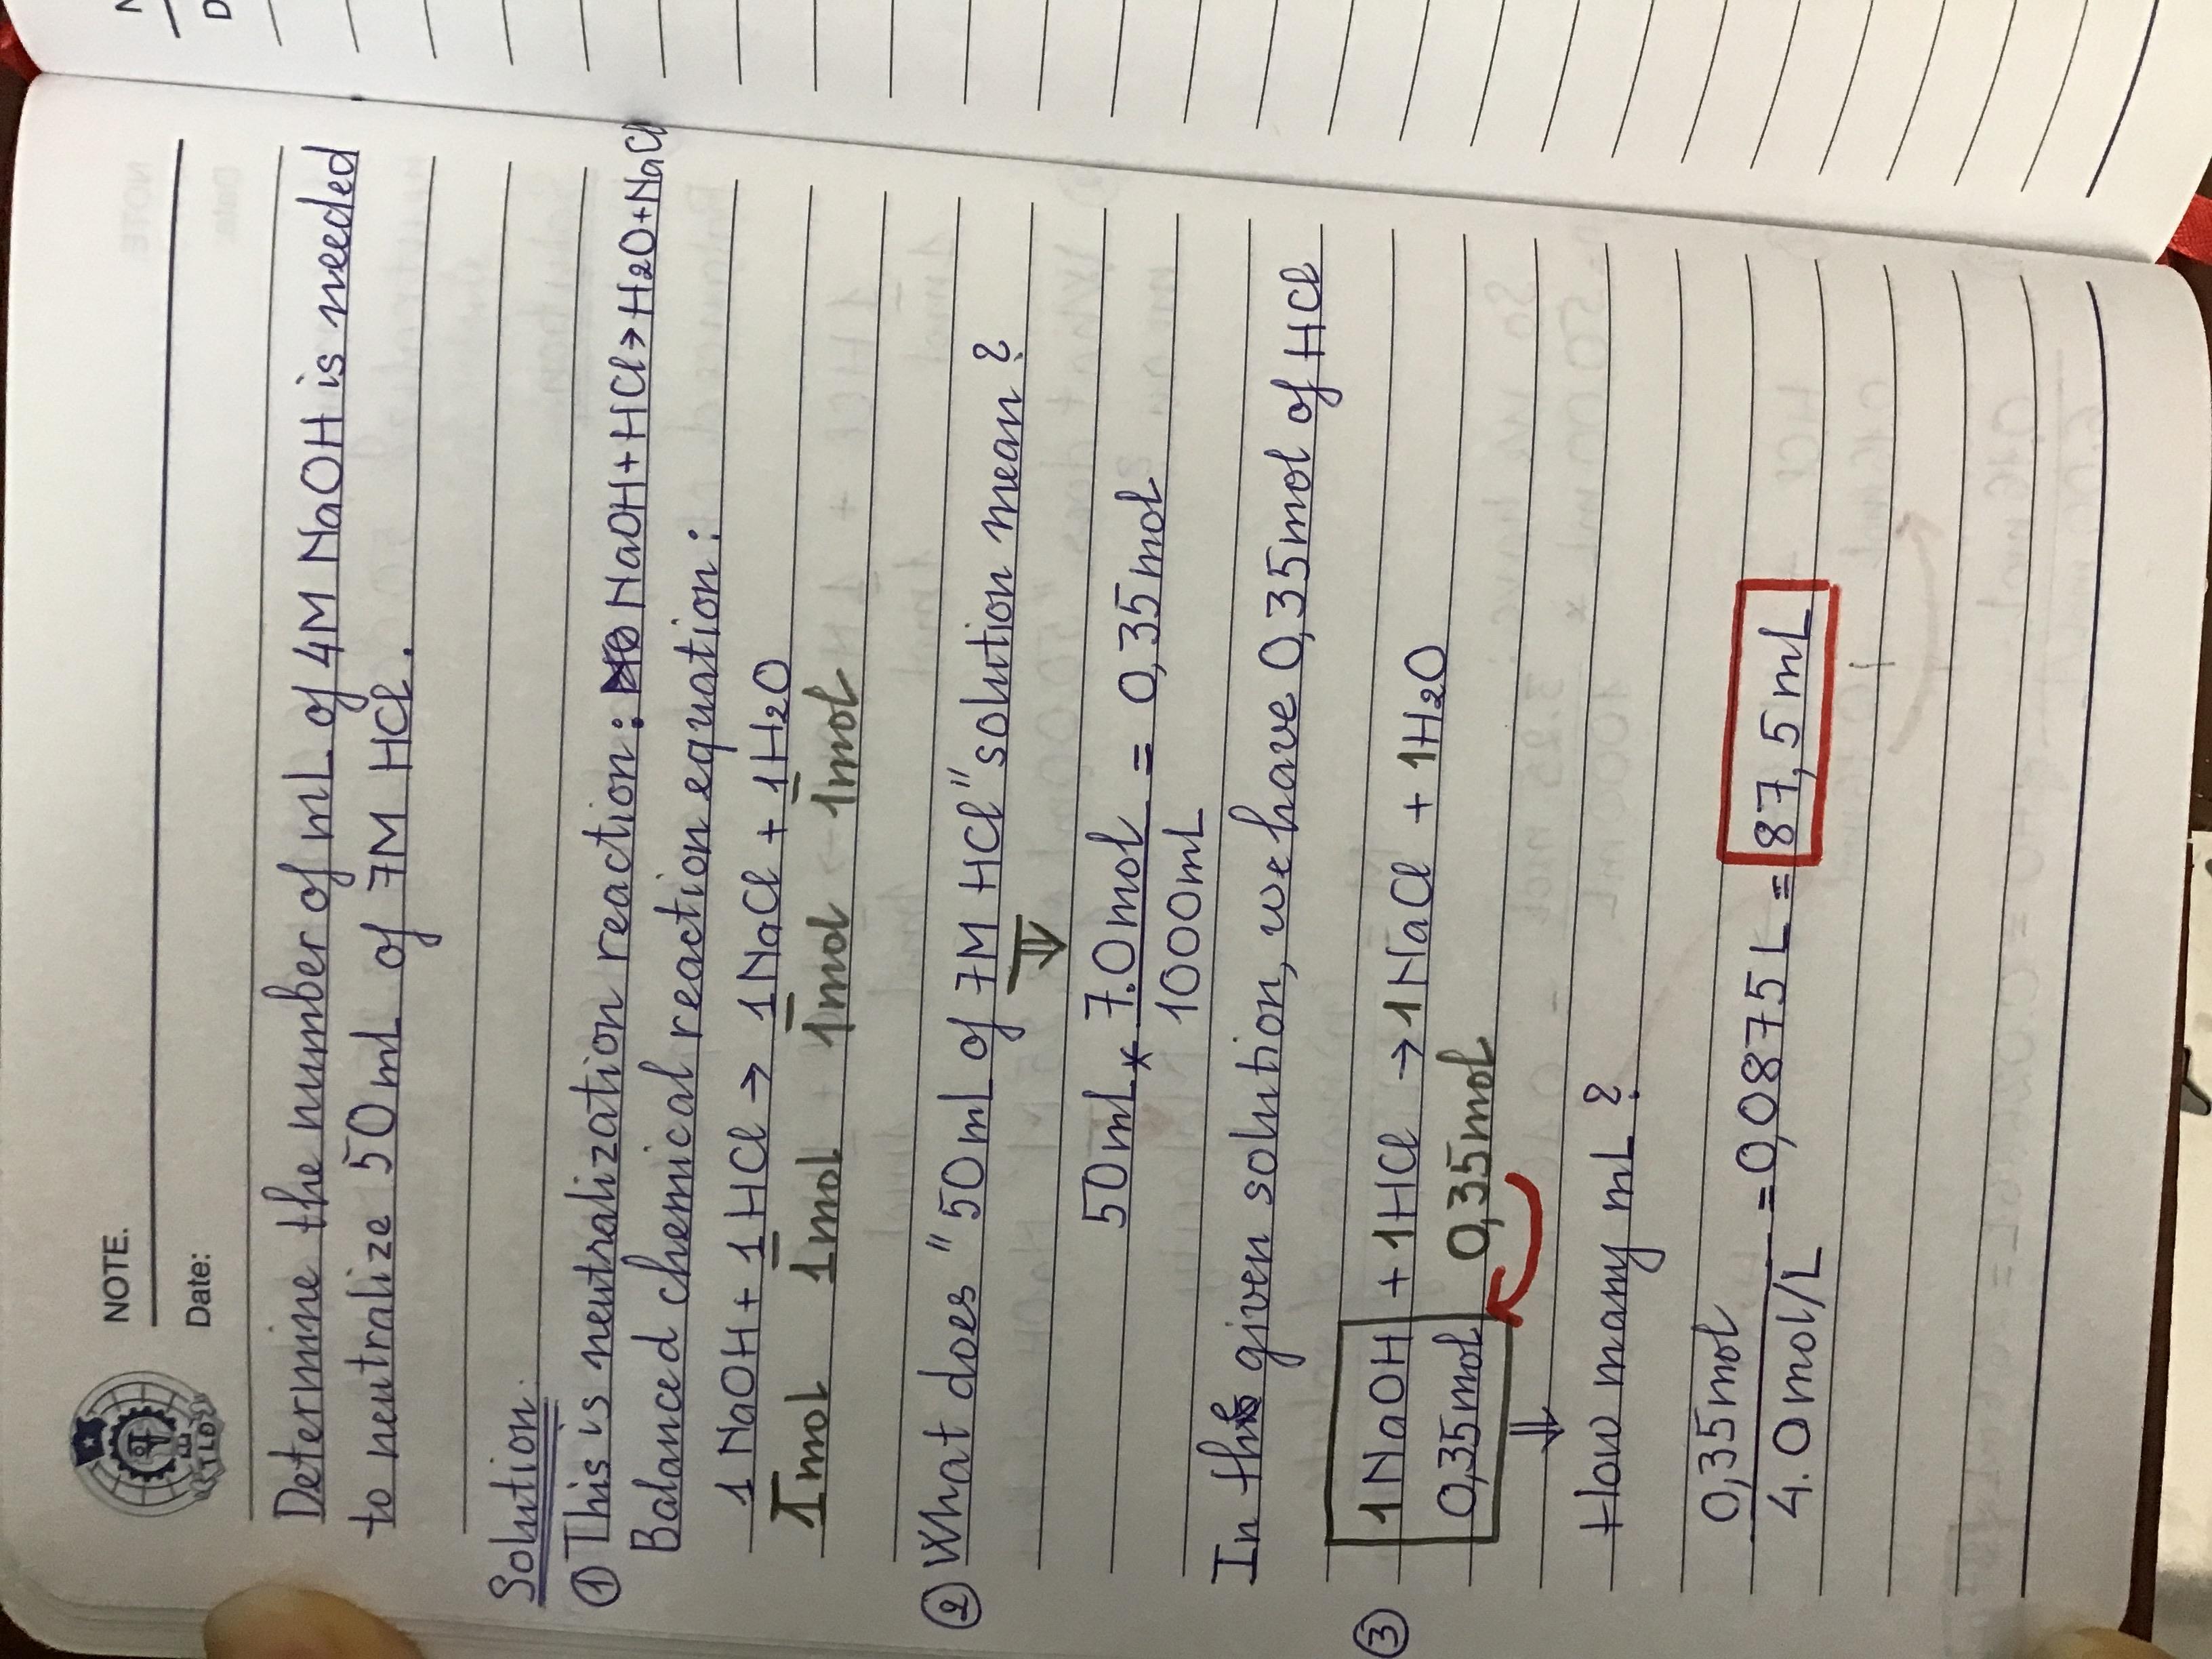 NOTE.
Date:
Determine the number of mL of 4M NaOH is needed
to neutralize 50 mL of 7M HCl.
Solution.
① This is neutralization reaction: NaOH + HCl → H₂O + NaCl
Balanced chemical reaction equation:
1 NaOH + 1 HCl → 1 NaCl + 1 H₂O
1mol 1mol 1mol → 1mol
② What does "50 mL of 7M HCl" solution mean?
⇓
50 mL * 7.0 mol / 1000 mL = 0,35 mol
In the given solution, we have 0,35 mol of HCl
③ 1 NaOH + 1 HCl → 1 NaCl + 1 H₂O
0,35 mol 0,35 mol
⇓
How many mL?
0,35 mol / 4.0 mol/L = 0,0875 L = 87,5 mL